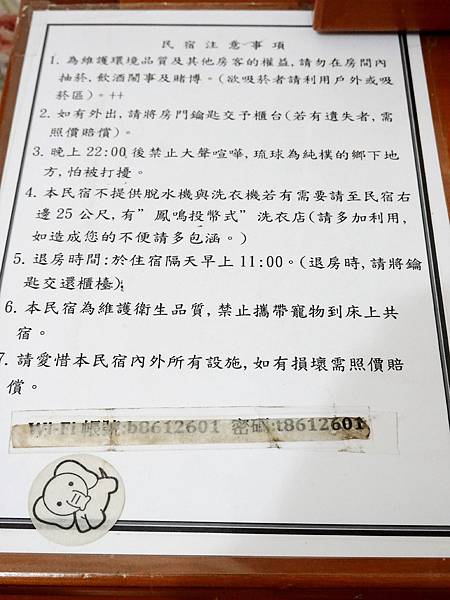 民宿注意事項
1. 為維護環境品質及其他房客的權益,請勿在房間內
抽菸,飲酒鬧事及賭博。(欲吸菸者請利用戶外或吸
菸區)。++
2. 如有外出,請將房門鑰匙交予櫃台(若有遺失者,需
照價賠償)。
3. 晚上 22:00 後禁止大聲喧嘩,琉球為純樸的鄉下地
方,怕被打擾。
4. 本民宿不提供脫水機與洗衣機若有需要請至民宿右
邊 25 公尺,有"鳳鳴投幣式"洗衣店(請多加利用,
如造成您的不便請多包涵。)
5. 退房時間:於住宿隔天早上 11:00。(退房時,請將鑰
匙交還櫃檯);
6. 本民宿為維護衛生品質,禁止攜帶寵物到床上共
宿。
7. 請愛惜本民宿內外所有設施,如有損壞需照價賠
償。
Wi-Fi 帳號:b8612601 密碼:t8612601